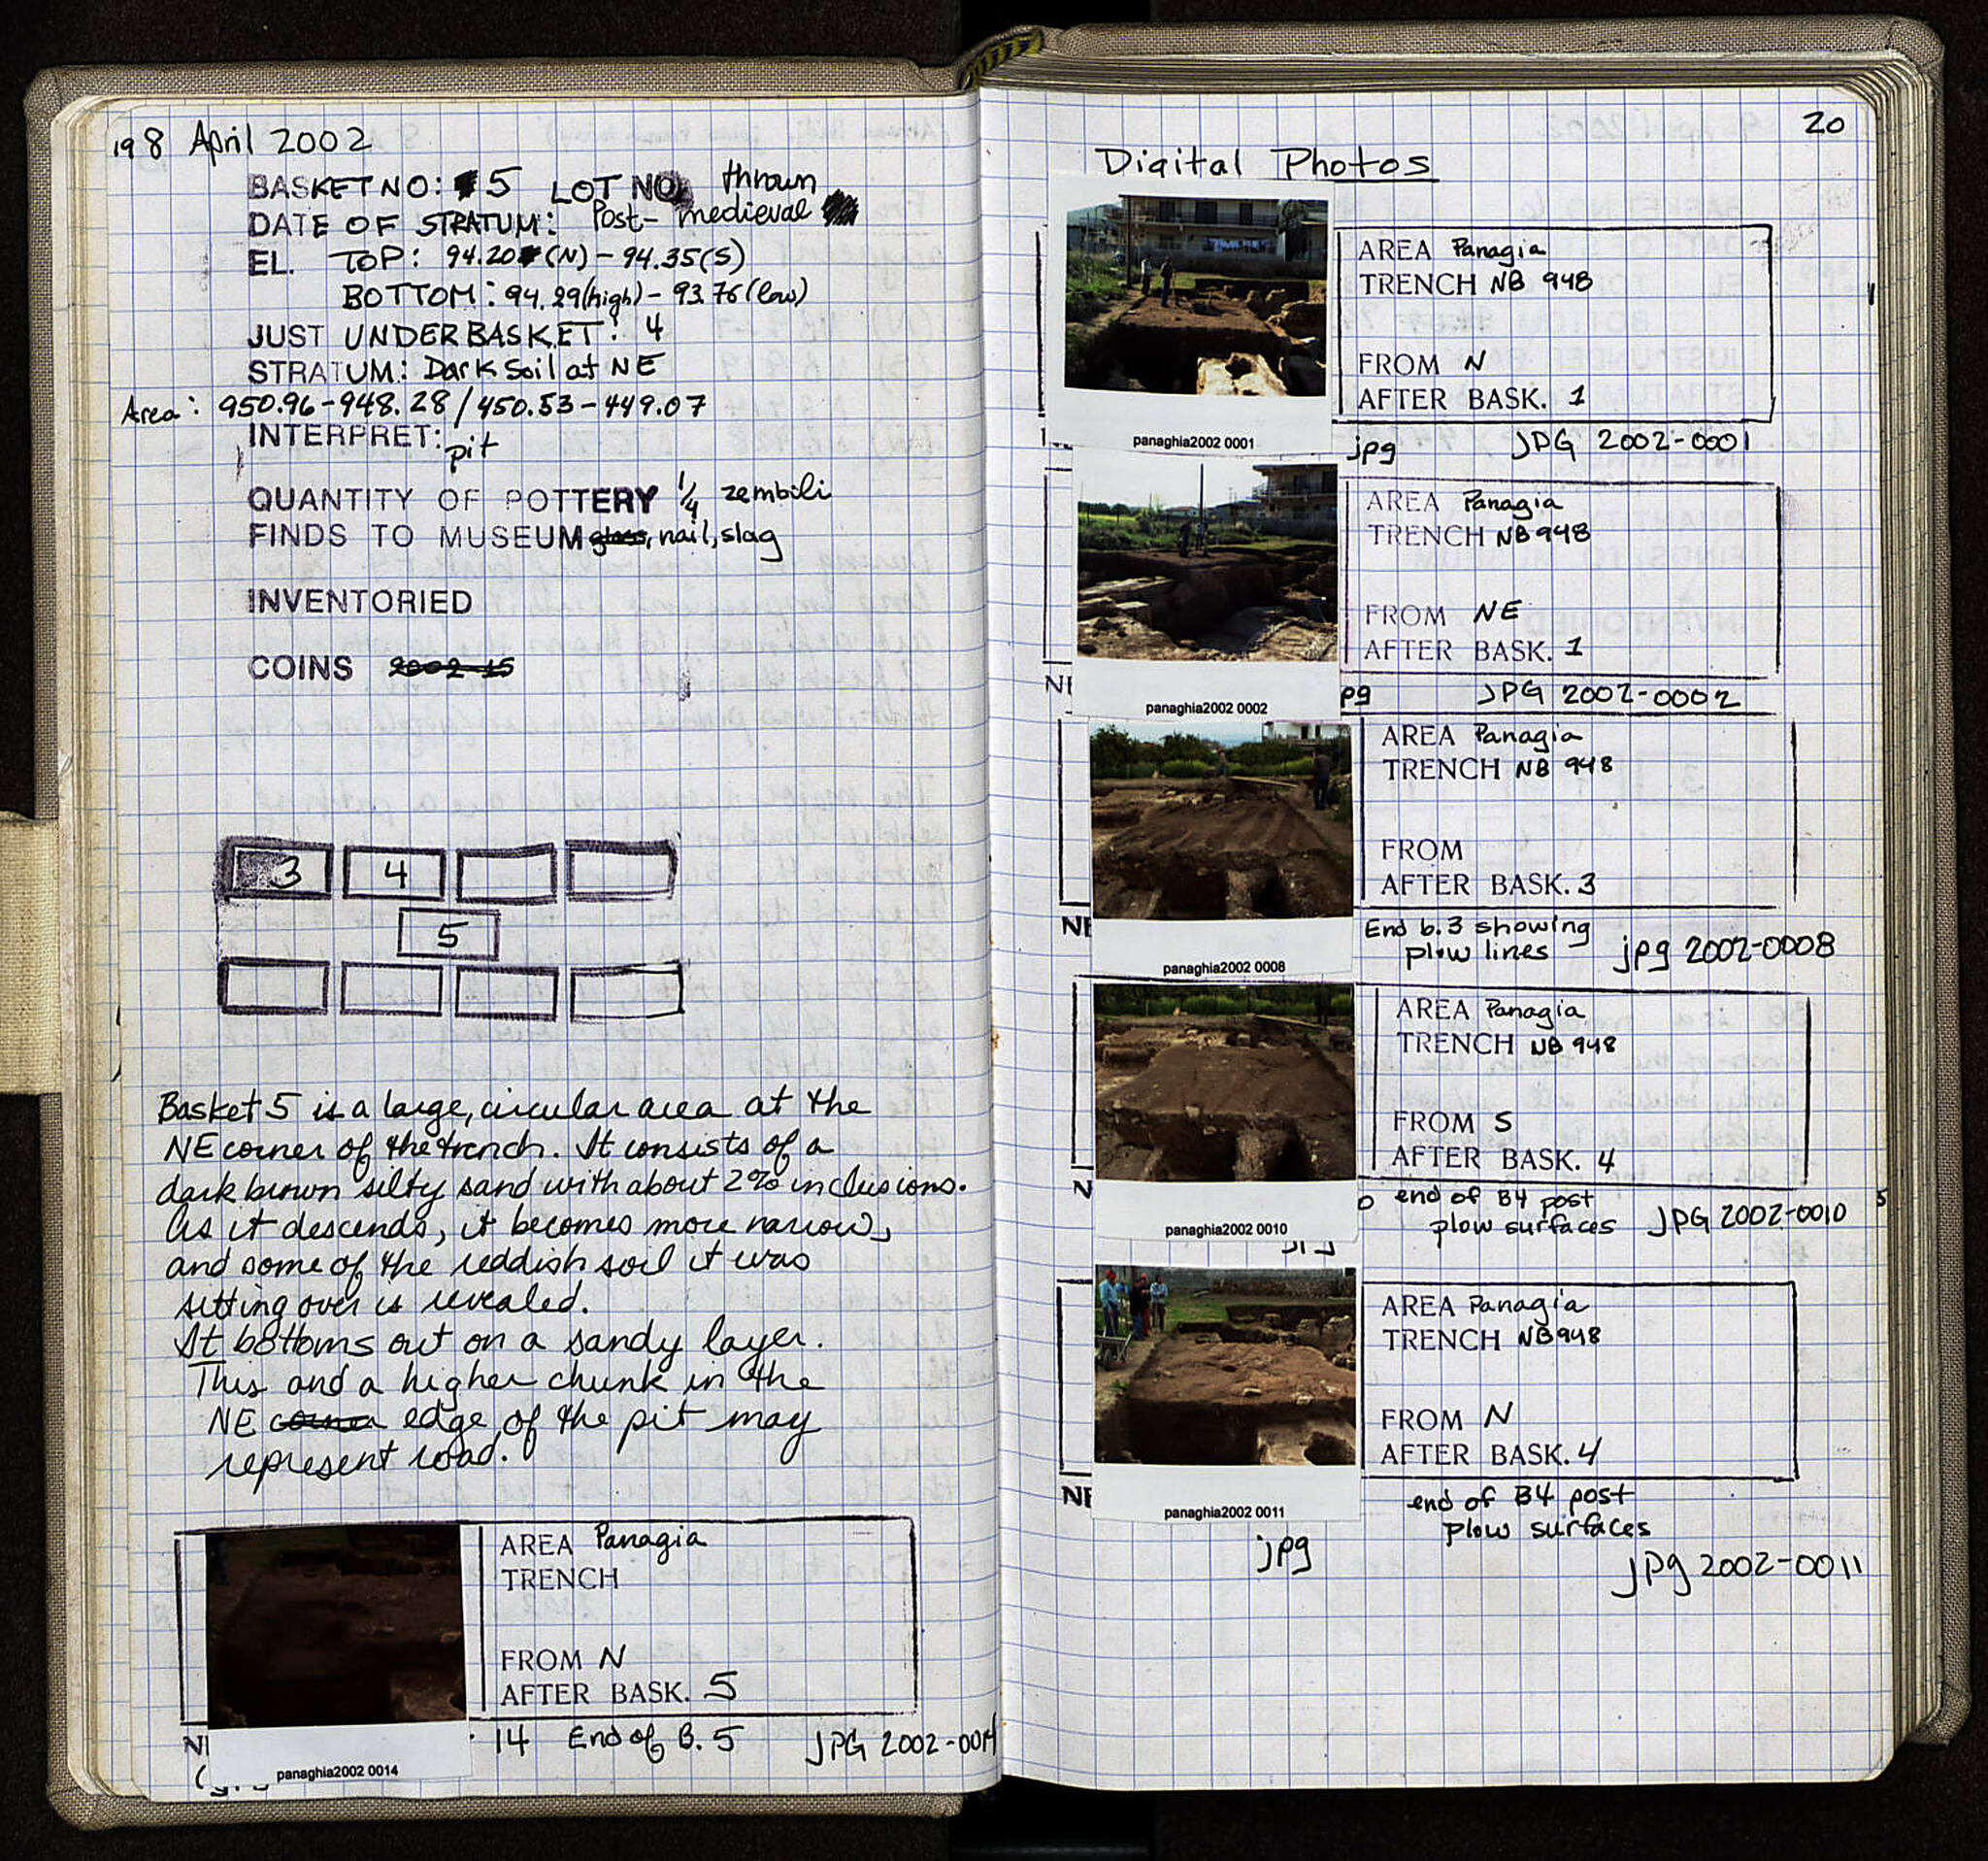 19 8 April 2002
BASKET NO: 5 LOT NO thrown
DATE OF STRATUM: Post-medieval
EL. TOP: 94.20 (N) - 94.35(S)
BOTTOM: 94.29(high) - 93.76(low)
JUST UNDER BASKET: 4
STRATUM: Dark Soil at NE
Area: 950.96-948.28/450.53-449.07
INTERPRET: pit
QUANTITY OF POTTERY 1/4 zembili
FINDS TO MUSEUM glass, nail, slag
INVENTORIED
COINS 2002-15
3 4
5
Basket 5 is a large, circular area at the
NE corner of the trench. It consists of a
dark brown silty sand with about 2% inclusions.
As it descends, it becomes more narrow,
and some of the reddish soil it was
sitting over is revealed.
It bottoms out on a sandy layer.
This and a higher chunk in the
NE corner edge of the pit may
represent road.
AREA Panagia
TRENCH
FROM N
AFTER BASK. 5
14 End of B. 5 JPG 2002-0014
panaghia2002 0014
20
Digital Photos
AREA Panagia
TRENCH NB 948
FROM N
AFTER BASK. 1
panaghia2002 0001
jpg JPG 2002-0001
AREA Panagia
TRENCH NB 948
FROM NE
AFTER BASK. 1
panaghia2002 0002
pg JPG 2002-0002
AREA Panagia
TRENCH NB 948
FROM
AFTER BASK. 3
End b.3 showing
plow lines jpg 2002-0008
panaghia2002 0008
AREA Panagia
TRENCH NB 948
FROM S
AFTER BASK. 4
end of B4 post
plow surfaces JPG 2002-0010
panaghia2002 0010
AREA Panagia
TRENCH NB 948
FROM N
AFTER BASK. 4
panaghia2002 0011
end of B4 post
plow surfaces
jpg
jpg 2002-0011